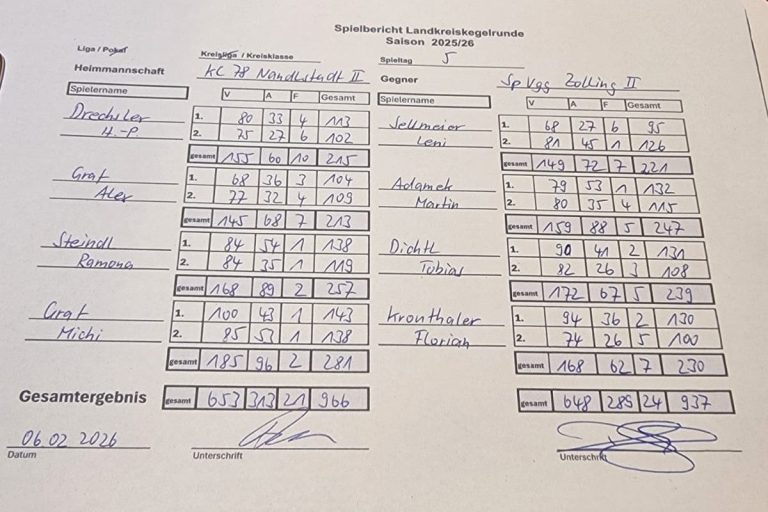 Spielbericht Landkreiskegelrunde
Saison 2025/26
Liga / Pokal Kreisliga / Kreisklasse Spieltag 5
Heimmannschaft KC 78 Nandlstadt II Gegner SpVgg Zolling II
Spielername V A F Gesamt Spielername V A F Gesamt
Drechsler 1. 80 33 4 113 Sellmeier 1. 68 27 6 95
H.-P. 2. 75 27 6 102 Leni 2. 81 45 1 126
gesamt 155 60 10 215 gesamt 149 72 7 221
Graf 1. 68 36 3 104 Adamek 1. 79 53 1 132
Alex 2. 77 32 4 109 Martin 2. 80 35 4 115
gesamt 145 68 7 213 gesamt 159 88 5 247
Steindl 1. 84 54 1 138 Dichtl 1. 90 41 2 131
Ramona 2. 84 35 1 119 Tobias 2. 82 26 3 108
gesamt 168 89 2 257 gesamt 172 67 5 239
Graf 1. 100 43 1 143 Kronthaler 1. 94 36 2 130
Michi 2. 85 53 1 138 Florian 2. 74 26 5 100
gesamt 185 96 2 281 gesamt 168 62 7 230
Gesamtergebnis gesamt 653 313 21 966 gesamt 648 289 24 937
06.02 2026
Datum Unterschrift Unterschrift